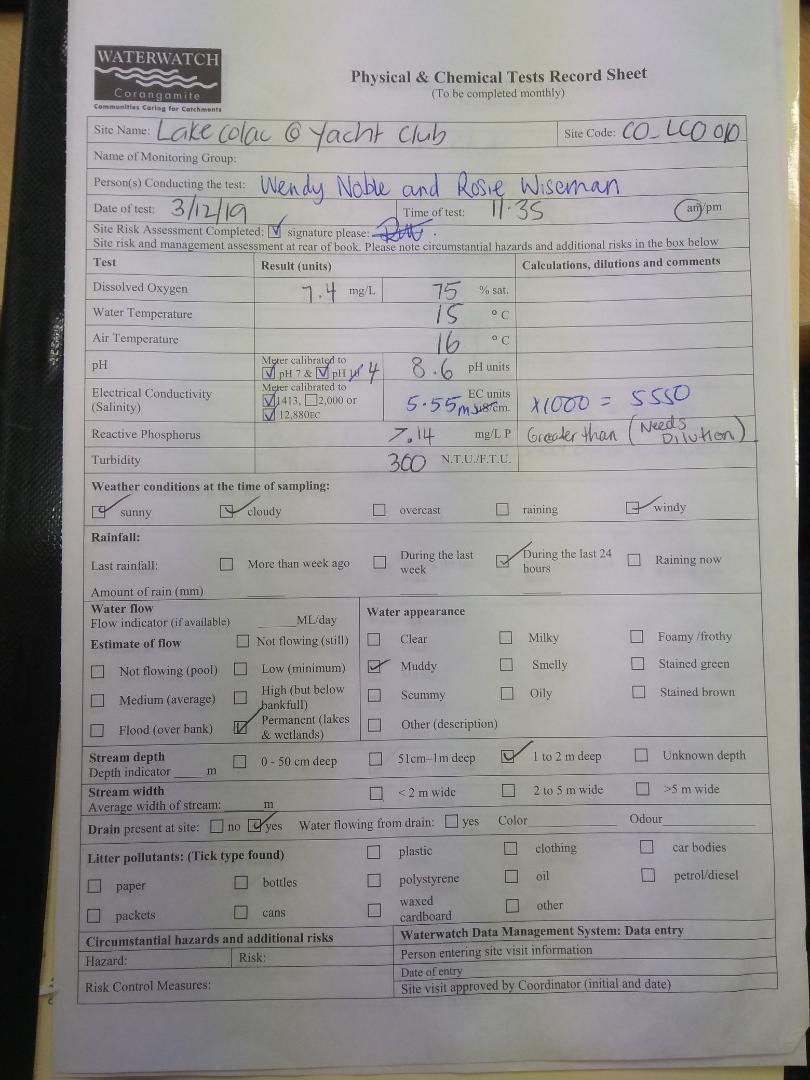 WATERWATCH
Corangamite
Communities Caring for Catchments
Physical & Chemical Tests Record Sheet
(To be completed monthly)
Site Name: Lake Colac @ Yacht Club Site Code: CO_LCO010
Name of Monitoring Group:
Person(s) Conducting the test: Wendy Noble and Rosie Wiseman
Date of test: 3/12/19 Time of test: 11.35 am/pm
Site Risk Assessment Completed: signature please:
Site risk and management assessment at rear of book. Please note circumstantial hazards and additional risks in the box below
Test Result (units) Calculations, dilutions and comments
Dissolved Oxygen 7.4 mg/L 75 % sat.
Water Temperature 15 ° C
Air Temperature 16 ° C
pH Meter calibrated to pH 7 & pH 4 8.6 pH units
Electrical Conductivity (Salinity) Meter calibrated to 1413, 2,000 or 12,880EC 5.55 mS/cm. EC units x1000 = 5550
Reactive Phosphorus >.14 mg/L P Greater than (Needs Dilution)
Turbidity 300 N.T.U./F.T.U.
Weather conditions at the time of sampling:
sunny cloudy overcast raining windy
Rainfall:
Last rainfall: More than week ago During the last week During the last 24 hours Raining now
Amount of rain (mm)
Water flow Water appearance
Flow indicator (if available) ML/day
Estimate of flow Not flowing (still) Clear Milky Foamy /frothy
Not flowing (pool) Low (minimum) Muddy Smelly Stained green
Medium (average) High (but below bankfull) Scummy Oily Stained brown
Flood (over bank) Permanent (lakes & wetlands) Other (description)
Stream depth 0 - 50 cm deep 51cm–1m deep 1 to 2 m deep Unknown depth
Depth indicator m
Stream width < 2 m wide 2 to 5 m wide >5 m wide
Average width of stream: m
Drain present at site: no yes Water flowing from drain: yes Color Odour
Litter pollutants: (Tick type found) plastic clothing car bodies
paper bottles polystyrene oil petrol/diesel
packets cans waxed cardboard other
Circumstantial hazards and additional risks Waterwatch Data Management System: Data entry
Hazard: Risk: Person entering site visit information
Date of entry
Risk Control Measures: Site visit approved by Coordinator (initial and date)